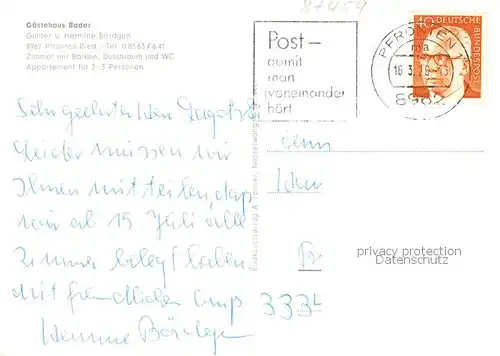 87459
Gästehaus Bader
Gunter u. Hermine Bördgen
8967 Pfronten-Ried - Tel. 08363/641
Zimmer mit Balkon, Duschraum und WC
Appartement für 2-3 Personen
Post-
damit
man
voneinander
hört
PFRONTEN 1
ma
16.3.76-15
8962
40 DEUTSCHE
BUNDESPOST
Sehr geehrter Herr
leider müssen wir
Ihnen mitteilen, dass
wir ab 15 Juli alle
Zimmer belegt haben.
mit freundlichem Gruß
Hermine Bördgen
Herrn
333
privacy protection
Datenschutz